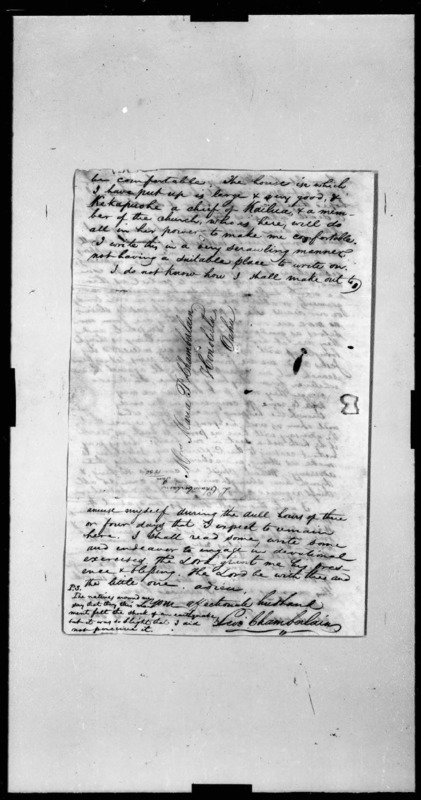 be comfortable. The house in which
I have put up is large & very good, &
Kekapuohe a chief of Kailua, & a mem-
ber of the church, who is here, will do
all in his power to make me comfortable.
I write this in a very scrawling manner
not having a suitable place to write on.
I do not know how I shall make out to
Mrs Maria P. Chamberlain
Honolulu
Oahu
L. Chamberlain
amuse myself during the dull hours of three
or four days that I expect to remain
here. I shall read some, write some
and endeavor to engage in devotional
exercises, the Lord grant me his pres-
ence & blessing. The Lord be with thee and
the little one. adieu,
affectionate husband
Levi Chamberlain
P.S.
The natives around me
say that they this
ment felt the shock of an earthquake
but it was so slight that I did
not perceive it.